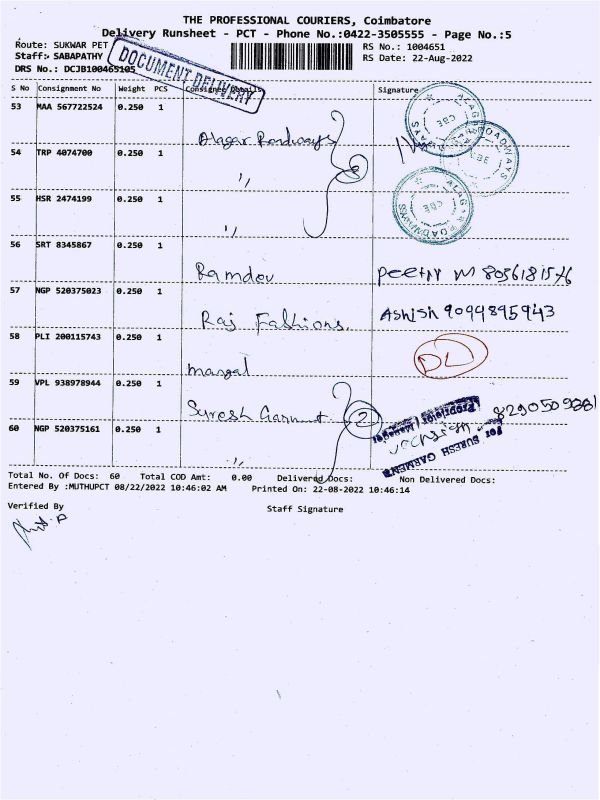 THE PROFESSIONAL COURIERS, Coimbatore
Delivery Runsheet - PCT - Phone No.:0422-3505555 - Page No.:5
Route: SUKWAR PET
RS No.: 1004651
Staff: SABAPATHY
RS Date: 22-Aug-2022
DRS No.: DCJB100465105
DOCUMENT DELIVERY
S No Consignment No Weight PCS Consignee Details Signature
53 MAA 567722524 0.250 1
Alagar Roadways
54 TRP 4074700 0.250 1
,,
55 HSR 2474199 0.250 1
,,
56 SRT 8345867 0.250 1
Ramdev
57 NGP 520375023 0.250 1
Raj Fashions. Ashish 9099895943
58 PLI 200115743 0.250 1
DL
mangal
59 VPL 938978944 0.250 1
Suresh Garment 2
Proprietor / Manager
For SURESH GARMENTS
60 NGP 520375161 0.250 1
,,
Total No. Of Docs: 60 Total COD Amt: 0.00 Delivered Docs: Non Delivered Docs:
Entered By :MUTHUPCT 08/22/2022 10:46:02 AM Printed On: 22-08-2022 10:46:14
Verified By
Staff Signature